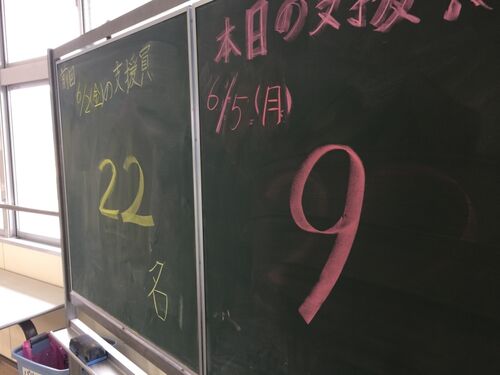 前回
6/2(金)の支援員
22
名
本日の支援
6/5(月)
9